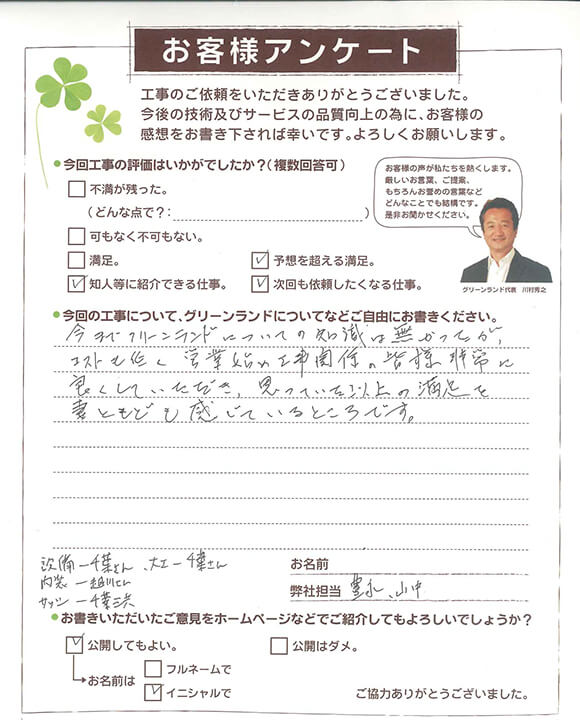 お客様アンケート
工事のご依頼をいただきありがとうございました。
今後の技術及びサービスの品質向上の為に、お客様の
感想をお書き下されば幸いです。よろしくお願いします。
●今回工事の評価はいかがでしたか？(複数回答可)
不満が残った。
(どんな点で？: )
可もなく不可もない。
満足。
✓予想を超える満足。
✓知人等に紹介できる仕事。
✓次回も依頼したくなる仕事。
お客様の声が私たちを熱くします。
厳しいお言葉、ご提案、
もちろんお誉めの言葉など
どんなことでも結構です。
是非お聞かせください。
グリーンランド代表 川村秀之
●今回の工事について、グリーンランドについてなどご自由にお書きください。
今までグリーンランドについての知識は無かったが、
コストも低く営業始め工事関係の皆様非常に
良くしていただき、思っていた以上の満足を
妻ともども感じているところです。
設備ー千葉さん、大工ー千葉さん
内装ー
サッシー千葉
お名前
弊社担当 豊永、山中
●お書きいただいたご意見をホームページなどでご紹介してもよろしいでしょうか？
✓公開してもよい。
公開はダメ。
お名前は
フルネームで
✓イニシャルで
ご協力ありがとうございました。